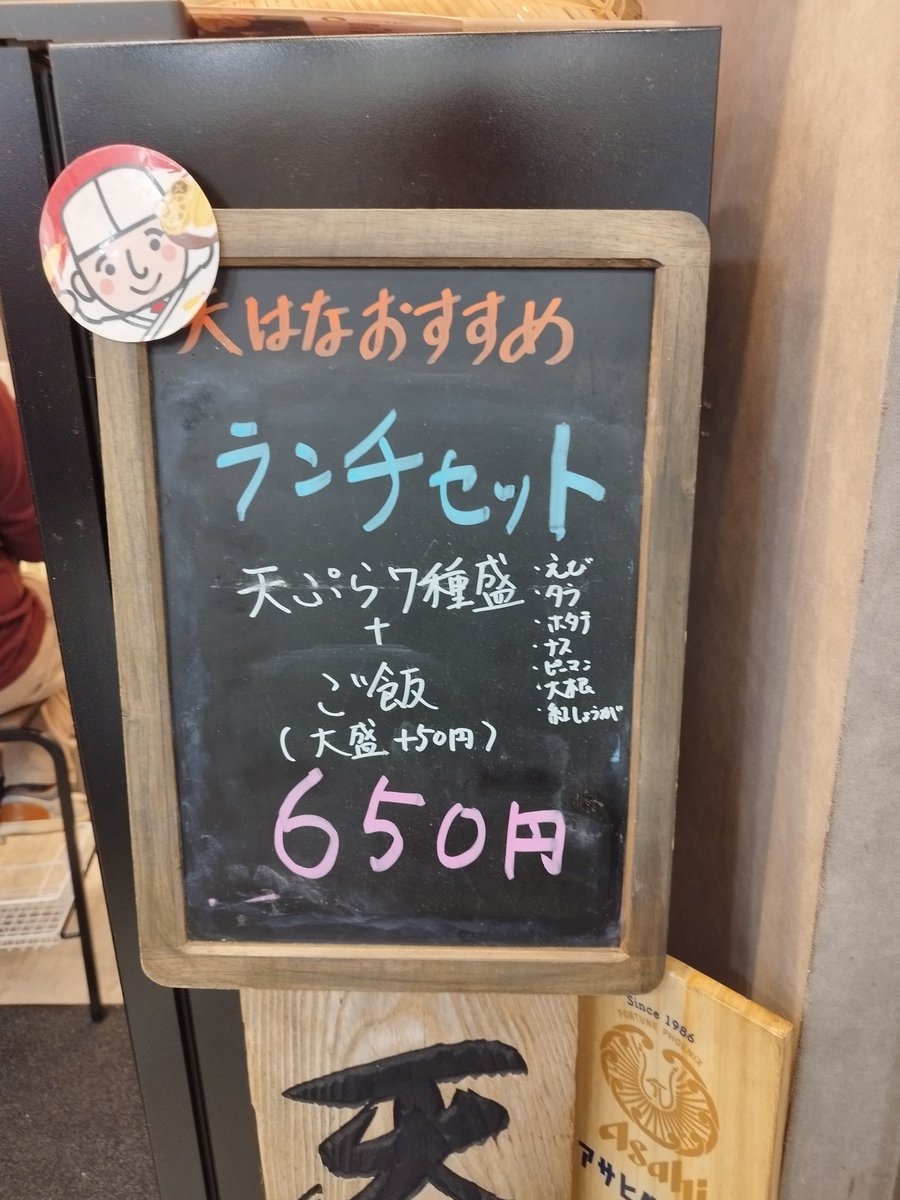 天はなおすすめ
ランチセット
天ぷら7種盛
+
ご飯
(大盛+50円)
650円
・えび
・タラ
・ホタテ
・ナス
・ピーマン
・大根
・紅しょうが
天
Since 1986
FORTUNE PHOENIX
Asahi
アサヒ